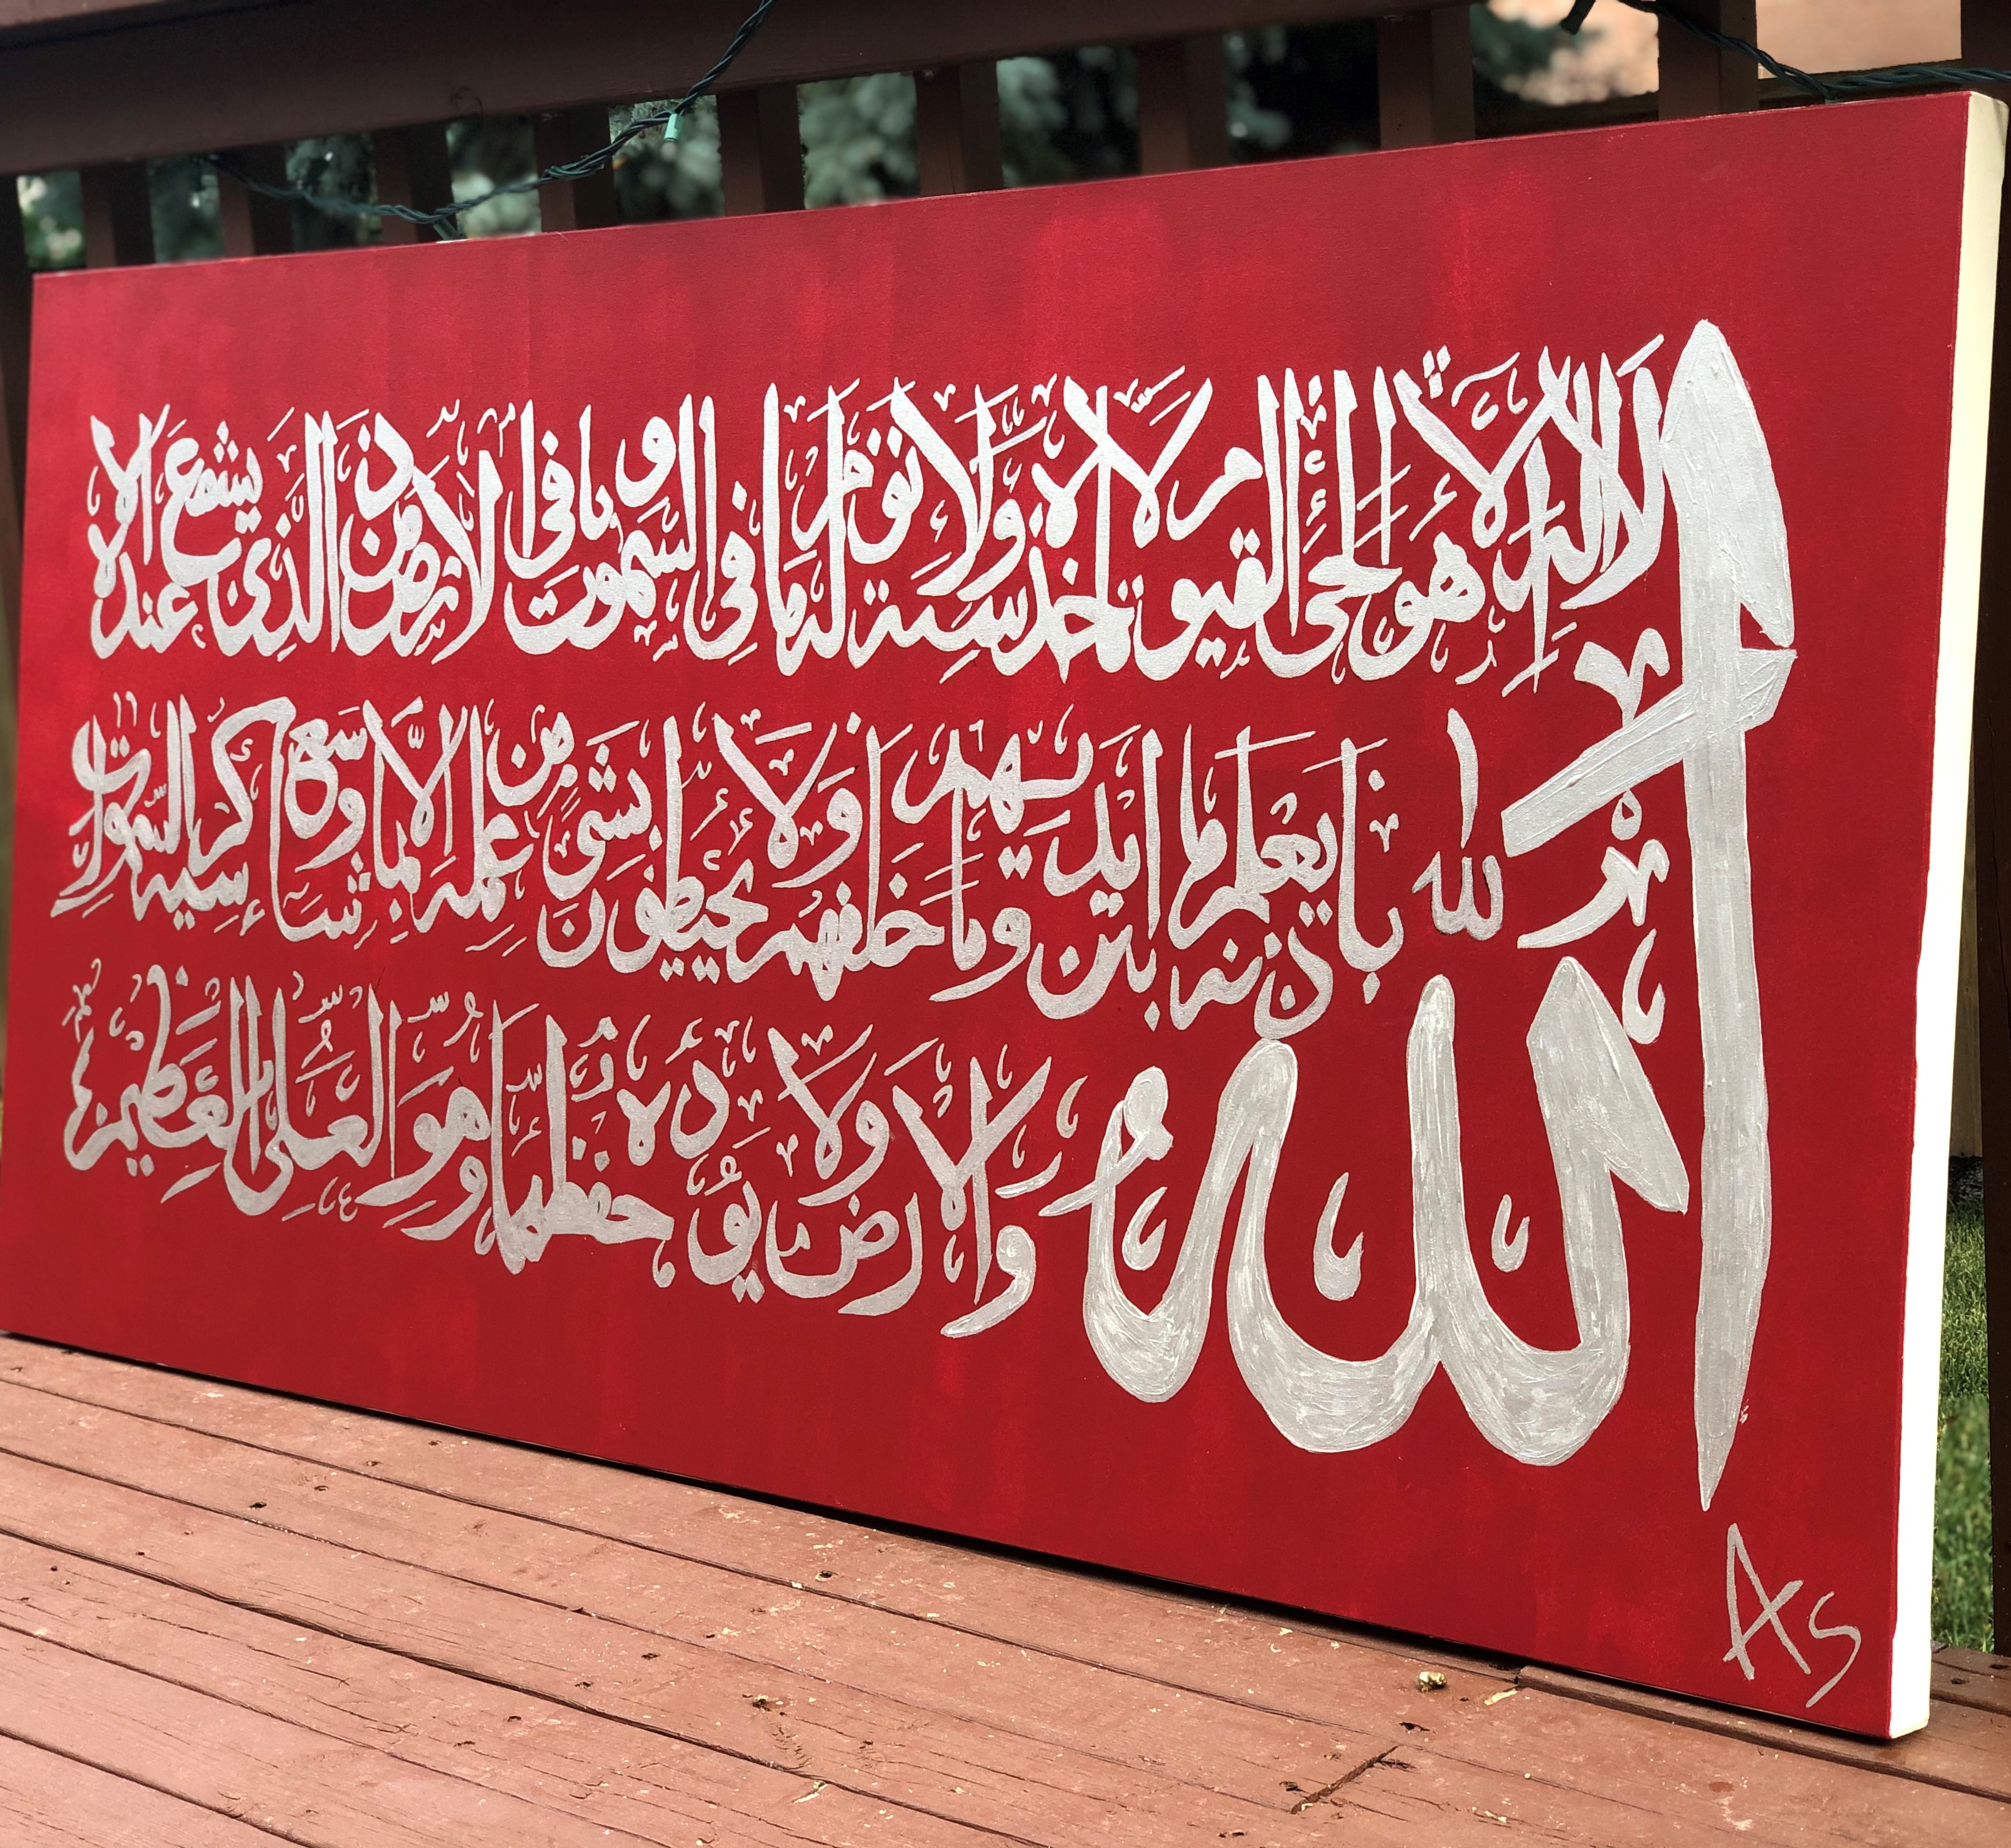 الله
لا اله الا هو الحي القيوم لا تاخذه سنة ولا نوم له ما في السموت وما في الارض من ذا الذي يشفع عنده الا
باذنه يعلم ما بين ايديهم وما خلفهم ولا يحيطون بشيء من علمه الا بما شاء وسع كرسيه السموت
والارض ولا يؤده حفظهما وهو العلي العظيم
AS